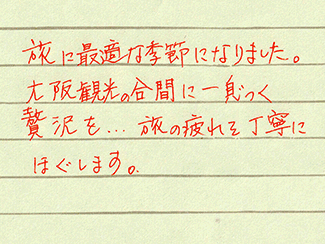 旅に最適な季節になりました。
大阪観光の合間に一息つく
贅沢を…旅の疲れを丁寧に
ほぐします。